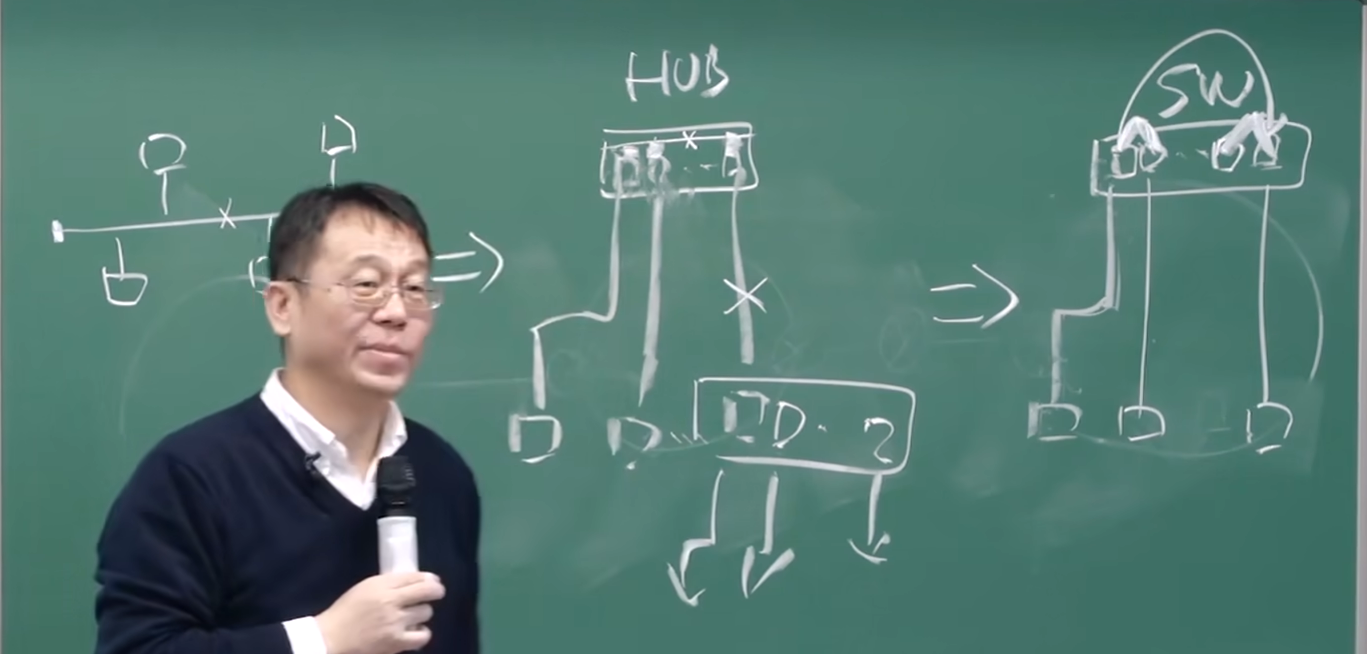 HUB
SW